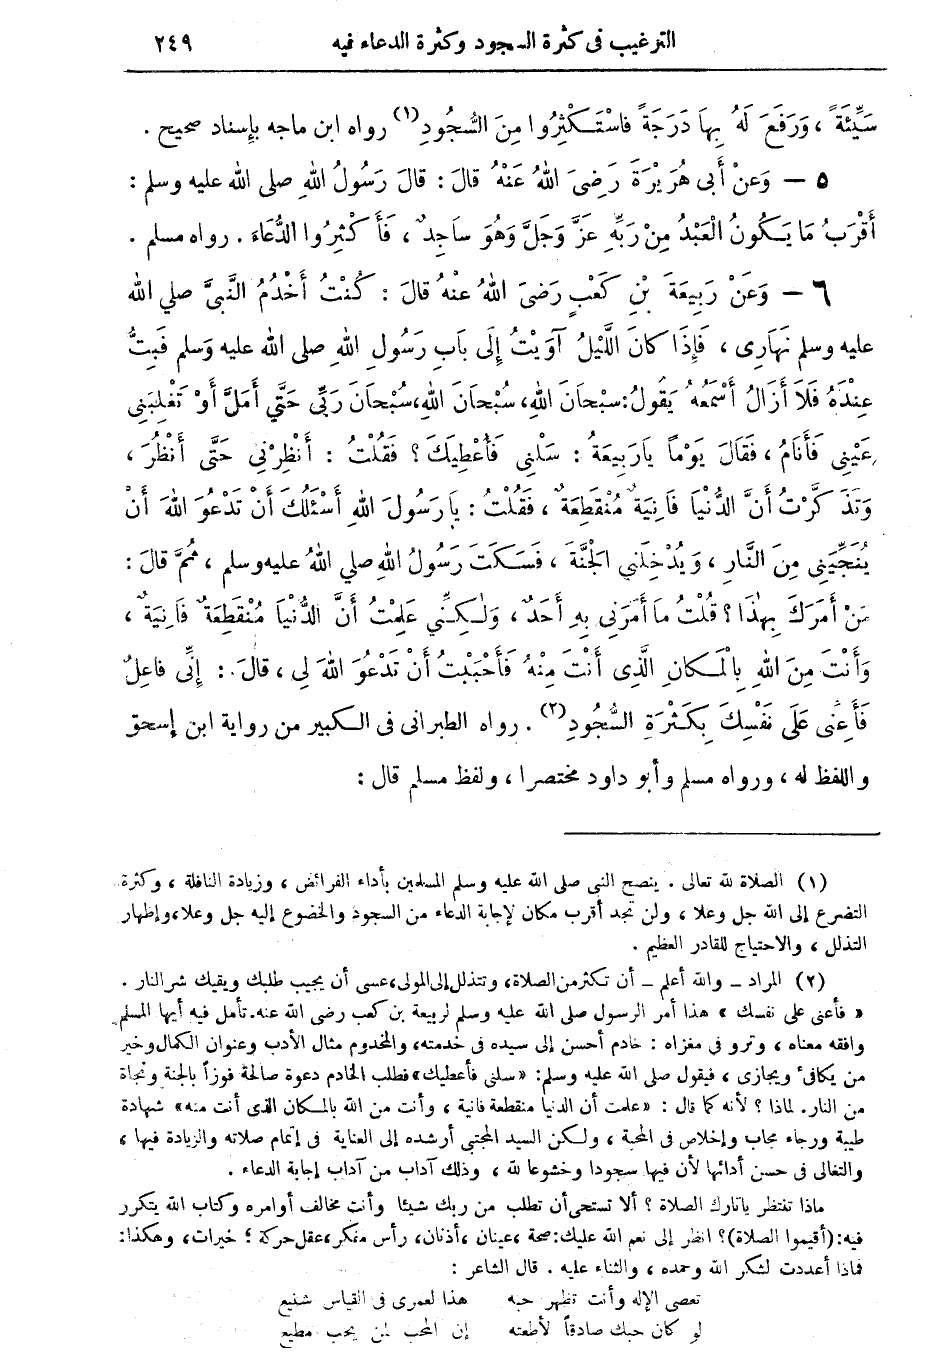 الترغيب فى كثرة السجود وكثرة الدعاء فيه ٢٤٩
سَيِّئَةً ، وَرَفَعَ لَهُ بِهَا دَرَجَةً فَاسْتَكْثِرُوا مِنَ السُّجُودِ(١) رواه ابن ماجه بإسناد صحيح .
٥ — وَعَنْ أَبى هُرَيْرَةَ رَضِىَ اللهُ عَنْهُ قالَ : قالَ رَسُولُ اللهِ صلى الله عليه وسلم :
أَقْرَبُ مَا يَكُونُ الْعَبْدُ مِنْ رَبِّهِ عَزَّ وَجَلَّ وَهُوَ ساَجِدٌ ، فَأَكْثِرُوا الدُّعَاءَ . رواه مسلم .
٦ — وَعَنْ رَبِيعَةَ بْنِ كَعْبٍ رَضِىَ اللهُ عنْهُ قالَ : كُنْتُ أَخْدُمُ النَّبِىَّ صلي الله
عليه وسلم نَهاَرِى ، فَإِذَا كانَ اللَّيْلُ آوَيْتُ إِلَى بابِ رَسُولِ اللهِ صلى الله عليه وَسلم فَبِتُّ
عِنْدَهُ فَلاَ أَزَالُ أَسْمَعُهُ يَقُولُ : سبْحاَنَ اللهِ، سُبْحاَنَ اللهِ، سُبْحاَنَ رَبِّى حَتَّي أَمَلَّ أَوْ تَغْلِبَنِى
عَيْنِى فَأَنَامُ ، فَقَالَ يَوْماً يَارَبِيعَةُ : سَلْنِى فَأُعْطِيَكَ ؟ فَقُلْتُ : أَنْظِرْنِي حَتَّى أَنْظُرَ ،
وَتَذَكَّرْتُ أَنَّ الدُّنْياَ فَانِيَةٌ مُنْقَطِعَةٌ ، فَقُلْتُ : ياَ رَسُولَ اللهِ أَسْئَلُكَ أَنْ تَدْعُوَ اللهَ أَنْ
يُنَجِّيَنِى مِنَ النَّارِ ، وَيُدْخِلَنِي الْجَنَّةَ ، فَسَكَتَ رَسُولُ اللهِ صلي اللهُ عليه وسلم ، ثُمَّ قالَ :
مَنْ أَمَرَكَ بِهٰذَا ؟ قُلْتُ ما أَمَرَنِي بِهِ أَحَدٌ ، وَلٰكِنِّي عَلِمْتُ أَنَّ الدُّنْياَ مُنْقَطِعَةٌ فَانِيَةٌ ،
وَأَنْتَ مِنَ اللهِ بِالْمَكانِ الَّذِى أَنْتَ مِنْهُ فَأَحْبَبْتُ أَنْ تَدْعُوَ اللهَ لِى ، قالَ : إِنِّى فاعِلٌ
فَأَعِنِّى عَلَى نَفْسِكَ بِكَثْرَةِ السُّجُودِ(٢) . رواه الطبرانى فى الكبير من رواية ابن إسحق
واللفظ له ، ورواه مسلم وأبو داود مختصرا ، ولفظ مسلم قال :
(١) الصلاة لله تعالى . ينصح النبى صلى الله عليه وسلم المسلمين بأداء الفرائض ، وزيادة النافلة ، وكثرة
التضرع إلى الله جل وعلا ، ولن تجد أقرب مكان لإجابة الدعاء من السجود والخضوع إليه جل وعلا، وإظهار
التذلل ، والاحتياج للقادر العظيم .
(٢) المراد ــ والله أعلم ــ أن تكثر من الصلاة، وتتذلل إلى المولى، عسى أن يجيب طلبك ويقيك شر النار .
« فأعنى على نفسك » هذا أمر الرسول صلى الله عليه وسلم لربيعة بن كعب رضى الله عنه. تأمل فيه أيها المسلم
وافقه معناه ، وترو فى مغزاه : خادم أحسن إلى سيده فى خدمته، والمخدوم مثال الأدب وعنوان الكمال وخير
من يكافئ ويجازى ، فيقول صلى الله عليه وسلم: «سلنى فأعطيك» فطلب الخادم دعوة صالحة فوزاً بالجنة ونجاة
من النار. لماذا ؟ لأنه كما قال : «علمت أن الدنيا منقطعة فانية ، وأنت من الله بالمكان الذى أنت منه» شهادة
طيبة ورجاء مجاب وإخلاص فى المحبة ، ولكن السيد المجتبى أرشده إلى العناية فى إتمام صلاته والزيادة فيها ،
والتغالى فى حسن أدائها لأن فيها سجودا وخشوعا لله ، وذلك آداب من آداب إجابة الدعاء .
ماذا تنتظر ياتارك الصلاة ؟ ألا تستحى أن تطلب من ربك شيئا وأنت مخالف أوامره وكتاب الله يتكرر
فيه: (أقيموا الصلاة)؟ انظر إلى نعم الله عليك: صحة ، عينان ، أذنان، رأس مفكر، عقل حركة ؛ خيرات، وهكذا:
فماذا أعددت لشكر الله وحمده ، والثناء عليه . قال الشاعر :
تعصى الإله وأنت تظهر حبه هذا لعمرى فى القياس شنيع
لو كان حبك صادقاً لأطعته إن المحب لمن يحب مطيع